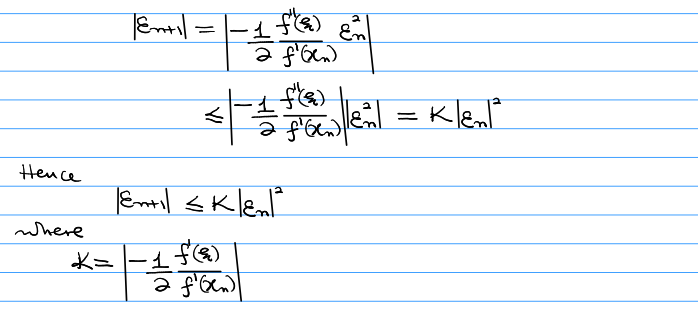 |εₙ₊₁| = |-1/2 f''(ξ)/f'(xₙ) εₙ²|
≤ |-1/2 f''(ξ)/f'(xₙ)| |εₙ²| = K|εₙ|²
Hence
|εₙ₊₁| ≤ K|εₙ|²
where
K = |-1/2 f'(ξ)/f'(xₙ)|